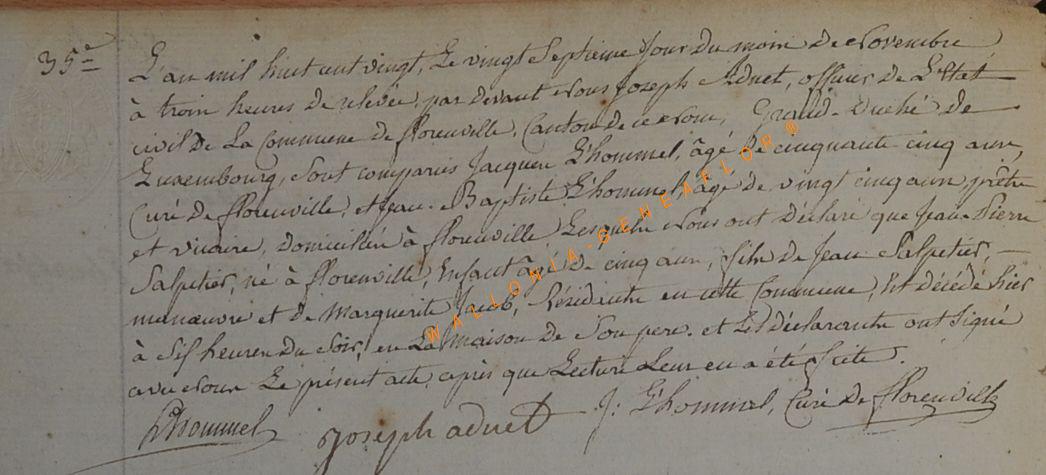 35e
L'an mil huit cent vingt, Le vingt Septieme Jour du mois de Novembre
à trois heures de relevée, par devant Nous Joseph Adnet, officier de L'Etat
civil de La Commune de florenville, Canton de ce nom, Grand-Duché de
Luxembourg, Sont comparus Jacques L'hommel, âgé de cinquante cinq ans,
Curé de florenville, et Jean-Baptiste L'hommel âgé de vingt cinq ans, prêtre
et vicaire, domiciliés à florenville Lesquels Nous ont déclaré que Jean-Pierre
Salpetier, né à florenville, Enfant âgé de cinq ans, fils de Jean Salpetier,
manœuvre et de Marguerite Jacob, Résidente en cette Commune, Est décédé hier
à Six heures du Soir, en La maison de Son pere. et Les déclarants ont Signé
avec Nous Le présent acte, après que Lecture Leur en a été faite.
Lhommel Joseph adnet J: L'hommel, Curé de florenville
WALLONIA-GENEAFLOR®